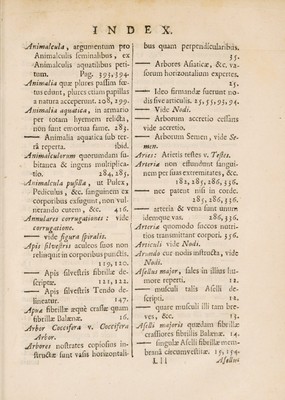 INDEX.
Animalcula, argumentum pro
Animalculis seminalibus, ex
Animalculis aquatilibus peti-
tum. Pag. 393,394.
Animalia quæ plures pussim fœ-
tus edunt, plures etiam papillas
a natura acceperunt. 208,299.
Animalia aquatica, in armario
per totam hyemem relicta,
non sunt emortua fame. 283.
— Animalia aquatica sub ter-
râ reperta. ibid.
Animalculorum quorumdam su-
bitanea & ingens multiplica-
tio. 284,285.
Animalcula pusilla, ut Pulex,
Pediculus, &c. sanguinem ex
corporibus exsugunt, non vul-
nerando cutem, &c. 416.
Annulares corrugationes: vide
corrugatione.
— vide figura spiralis.
Apis silvestris aculeos suos non
relinquit in corporibus punctis.
119,120.
— Apis silvestris fibrillæ de-
scriptæ. 121,122.
— Apis silvestris Tendo de-
lineatur. 147.
Apua fibrillæ æque crassæ quam
fibrillæ Balænæ. 16.
Arbor Coccifera v. Coccifera
Arbor.
Arbores nostrates copiosius in-
structæ sunt vasis horizontali-
bus quam perpendicularibus.
35.
— Arbores Asiaticæ, &c. va-
sorum horizontalium expertes.
25.
— Ideo firmandæ fuerunt no-
dis sive articulis. 25,35,93,94.
— Vide Nodi.
— Arborum accretio cessans
vide accretio.
— Arborum Semen, vide Se-
men.
Aries: Arietis testes v. Testes.
Arteriæ non effundunt sangui-
nem per suas extremitates, &c.
182,285,286,336.
— nec patent nisi in corde.
285,286,336.
— arteria & vena sunt unum
idemque vas. 286,336.
Arteria quomodo succos nutri-
tios transmittant corpori. 336.
Articuli vide Nodi.
Arundo cur nodis instructa, vide
Nodi.
Asellus major, sales in illius hu-
more reperti. 12.
— musculi talis Aselli de-
scripti. 12.
— quare musculi illi tam bre-
ves, &c. 13.
Aselli majoris quædam fibrillæ
crassiores fibrillis Balænæ. 14.
— singulæ Aselli fibrillæ mem-
branâ circumvestitæ. 15,154.
Lll Asellui